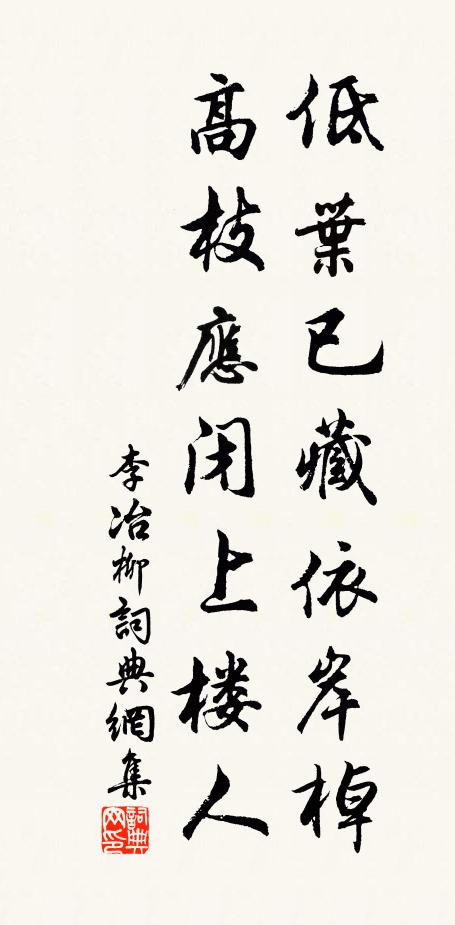 低葉已藏依岸棹
高枝應闭上楼人
李冶柳詞典網集
詞典网印